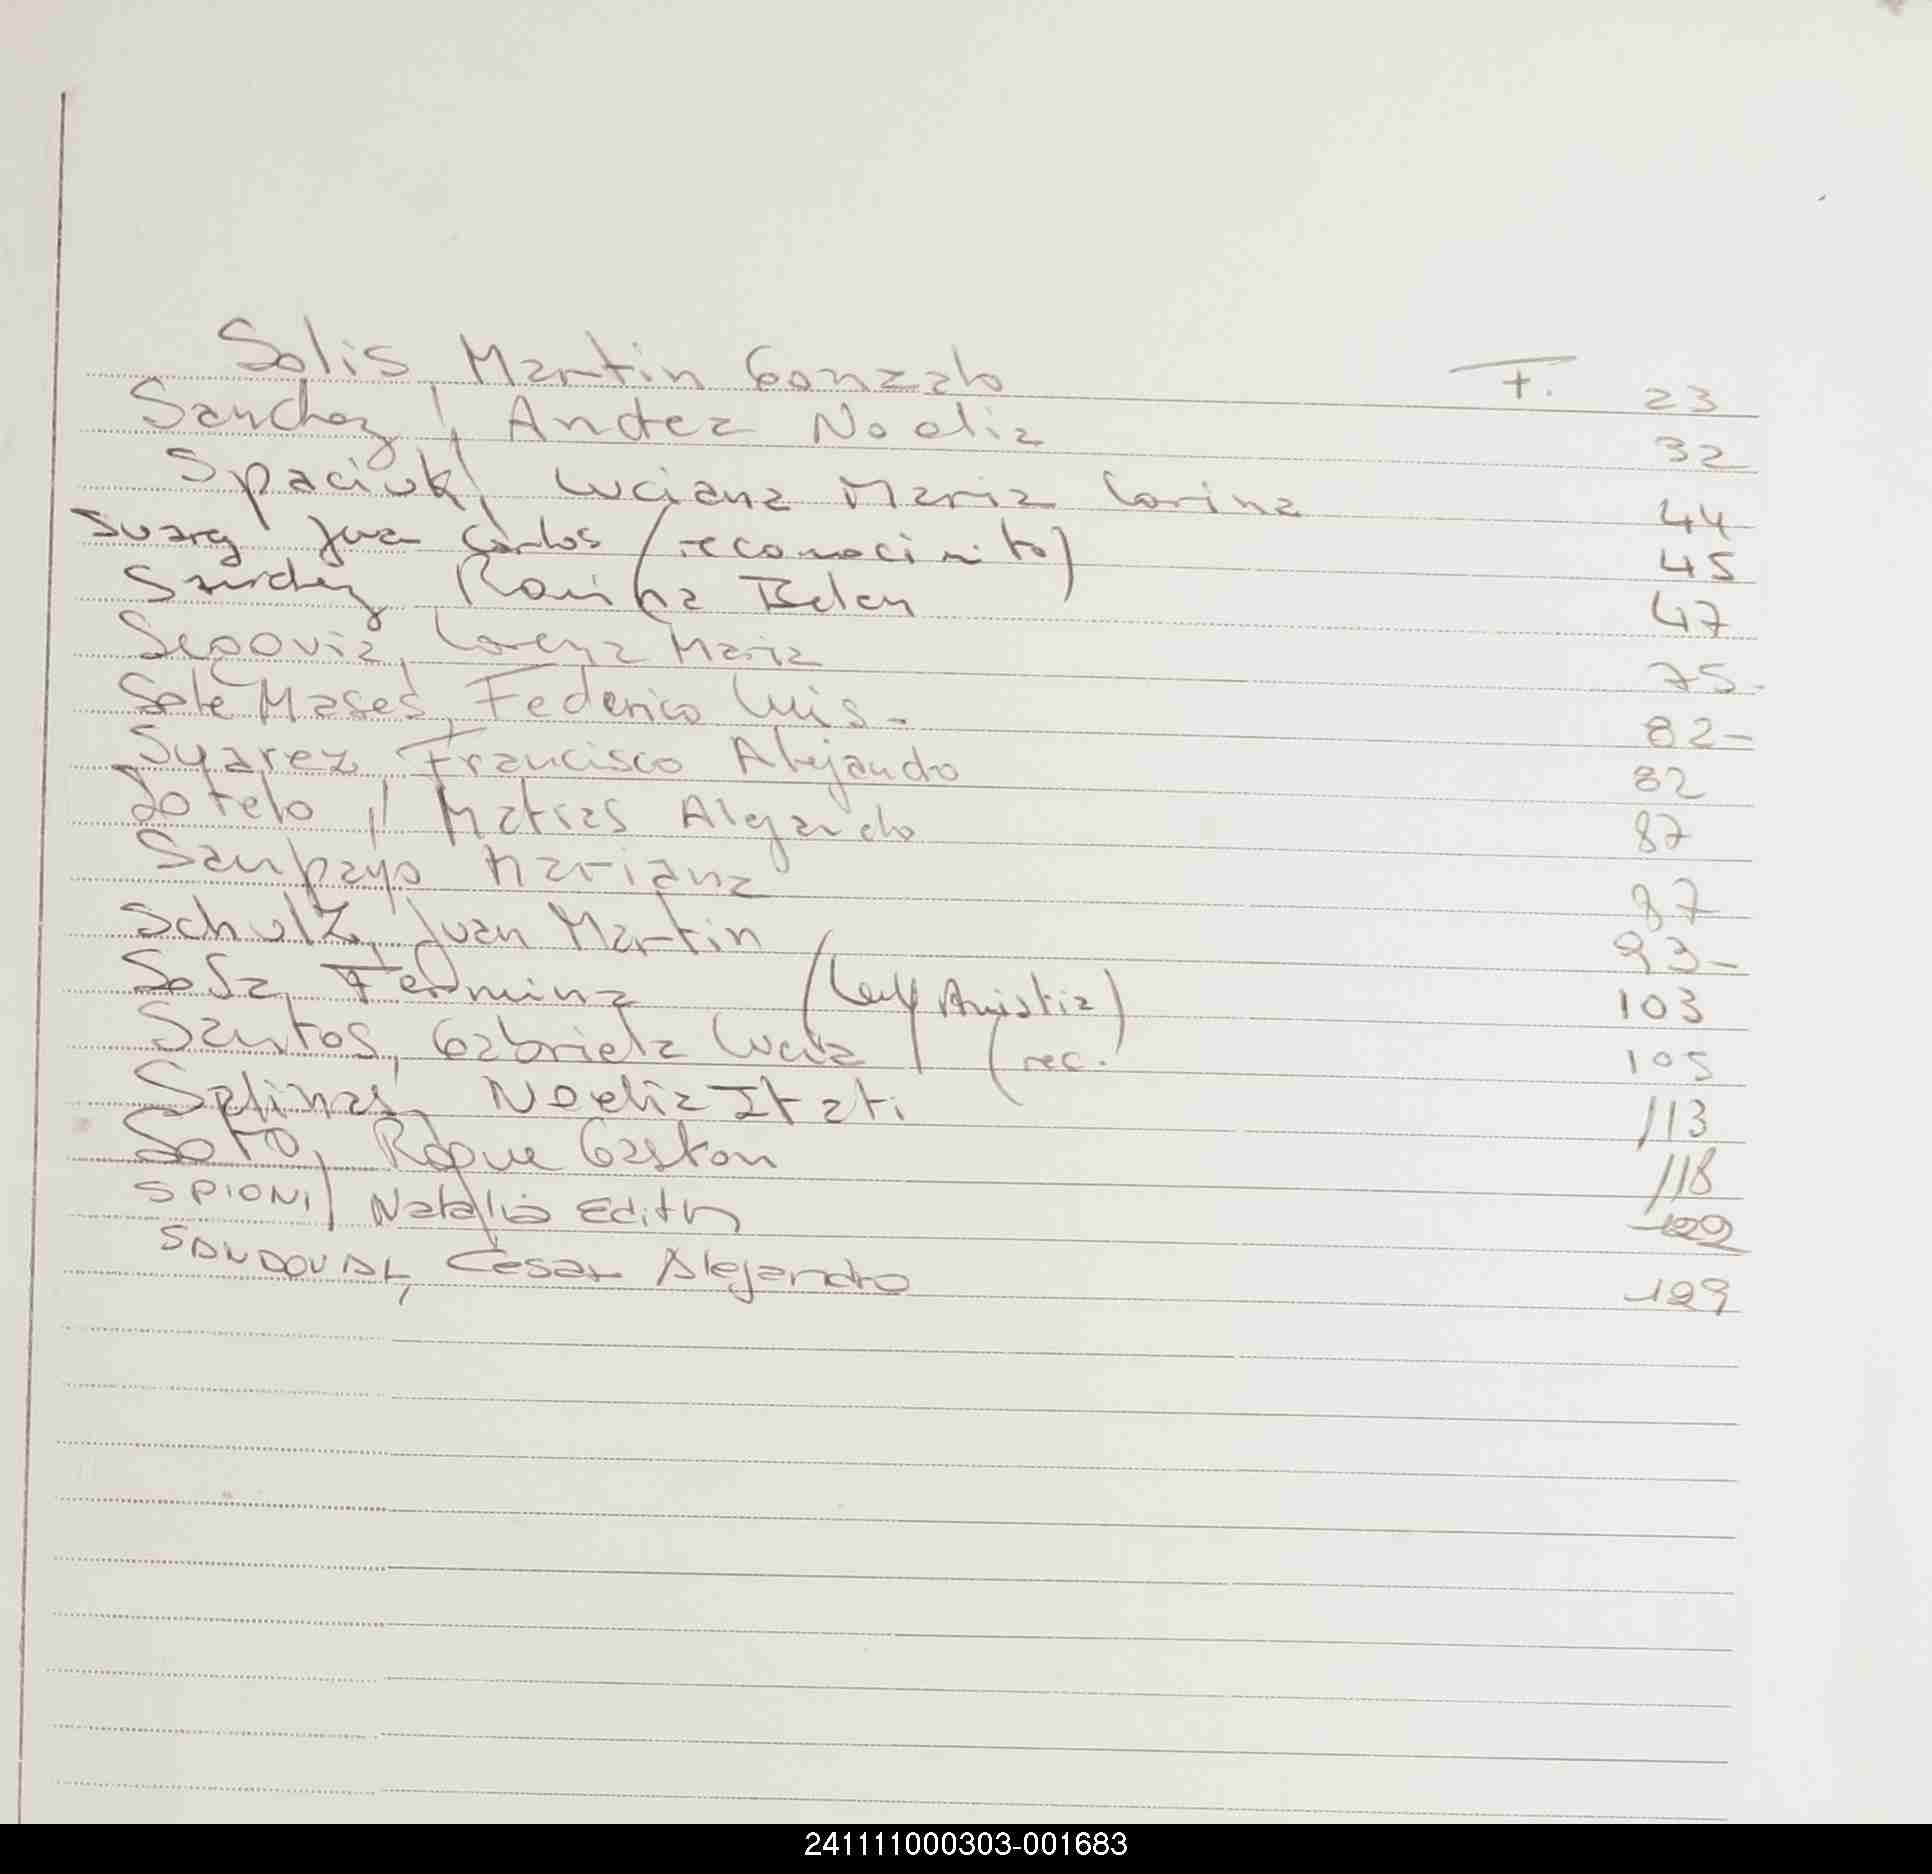 Solis, Martin Gonzalo F. 23
Sanchez, Andrea Noelia 32
Spaciuk, Luciana Maria Corina 44
Suarez Juan Carlos (reconocimito) 45
Sanchez Romina Belen 47
Segovia, Lorena Maria 75.
Solé Mases, Federico Luis. 82-
Suarez, Francisco Alejandro 82
Sotelo, Matias Alejandro 87
Sanpayo Mariana 87
Schulz, Juan Martin 93-
Sosa, Fermina (Ley Amistia) 103
Santos, Gabriela Lucia (rec. 105
Salinas, Noelia Itati 113
Soto, Roque Gaston 118
SPIONI, Natalia Edith 122
SANDOVAL, Cesar Alejandro 129
241111000303-001683